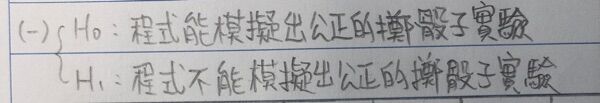 (一) { H₀：程式能模擬出公正的擲骰子實驗
H₁：程式不能模擬出公正的擲骰子實驗